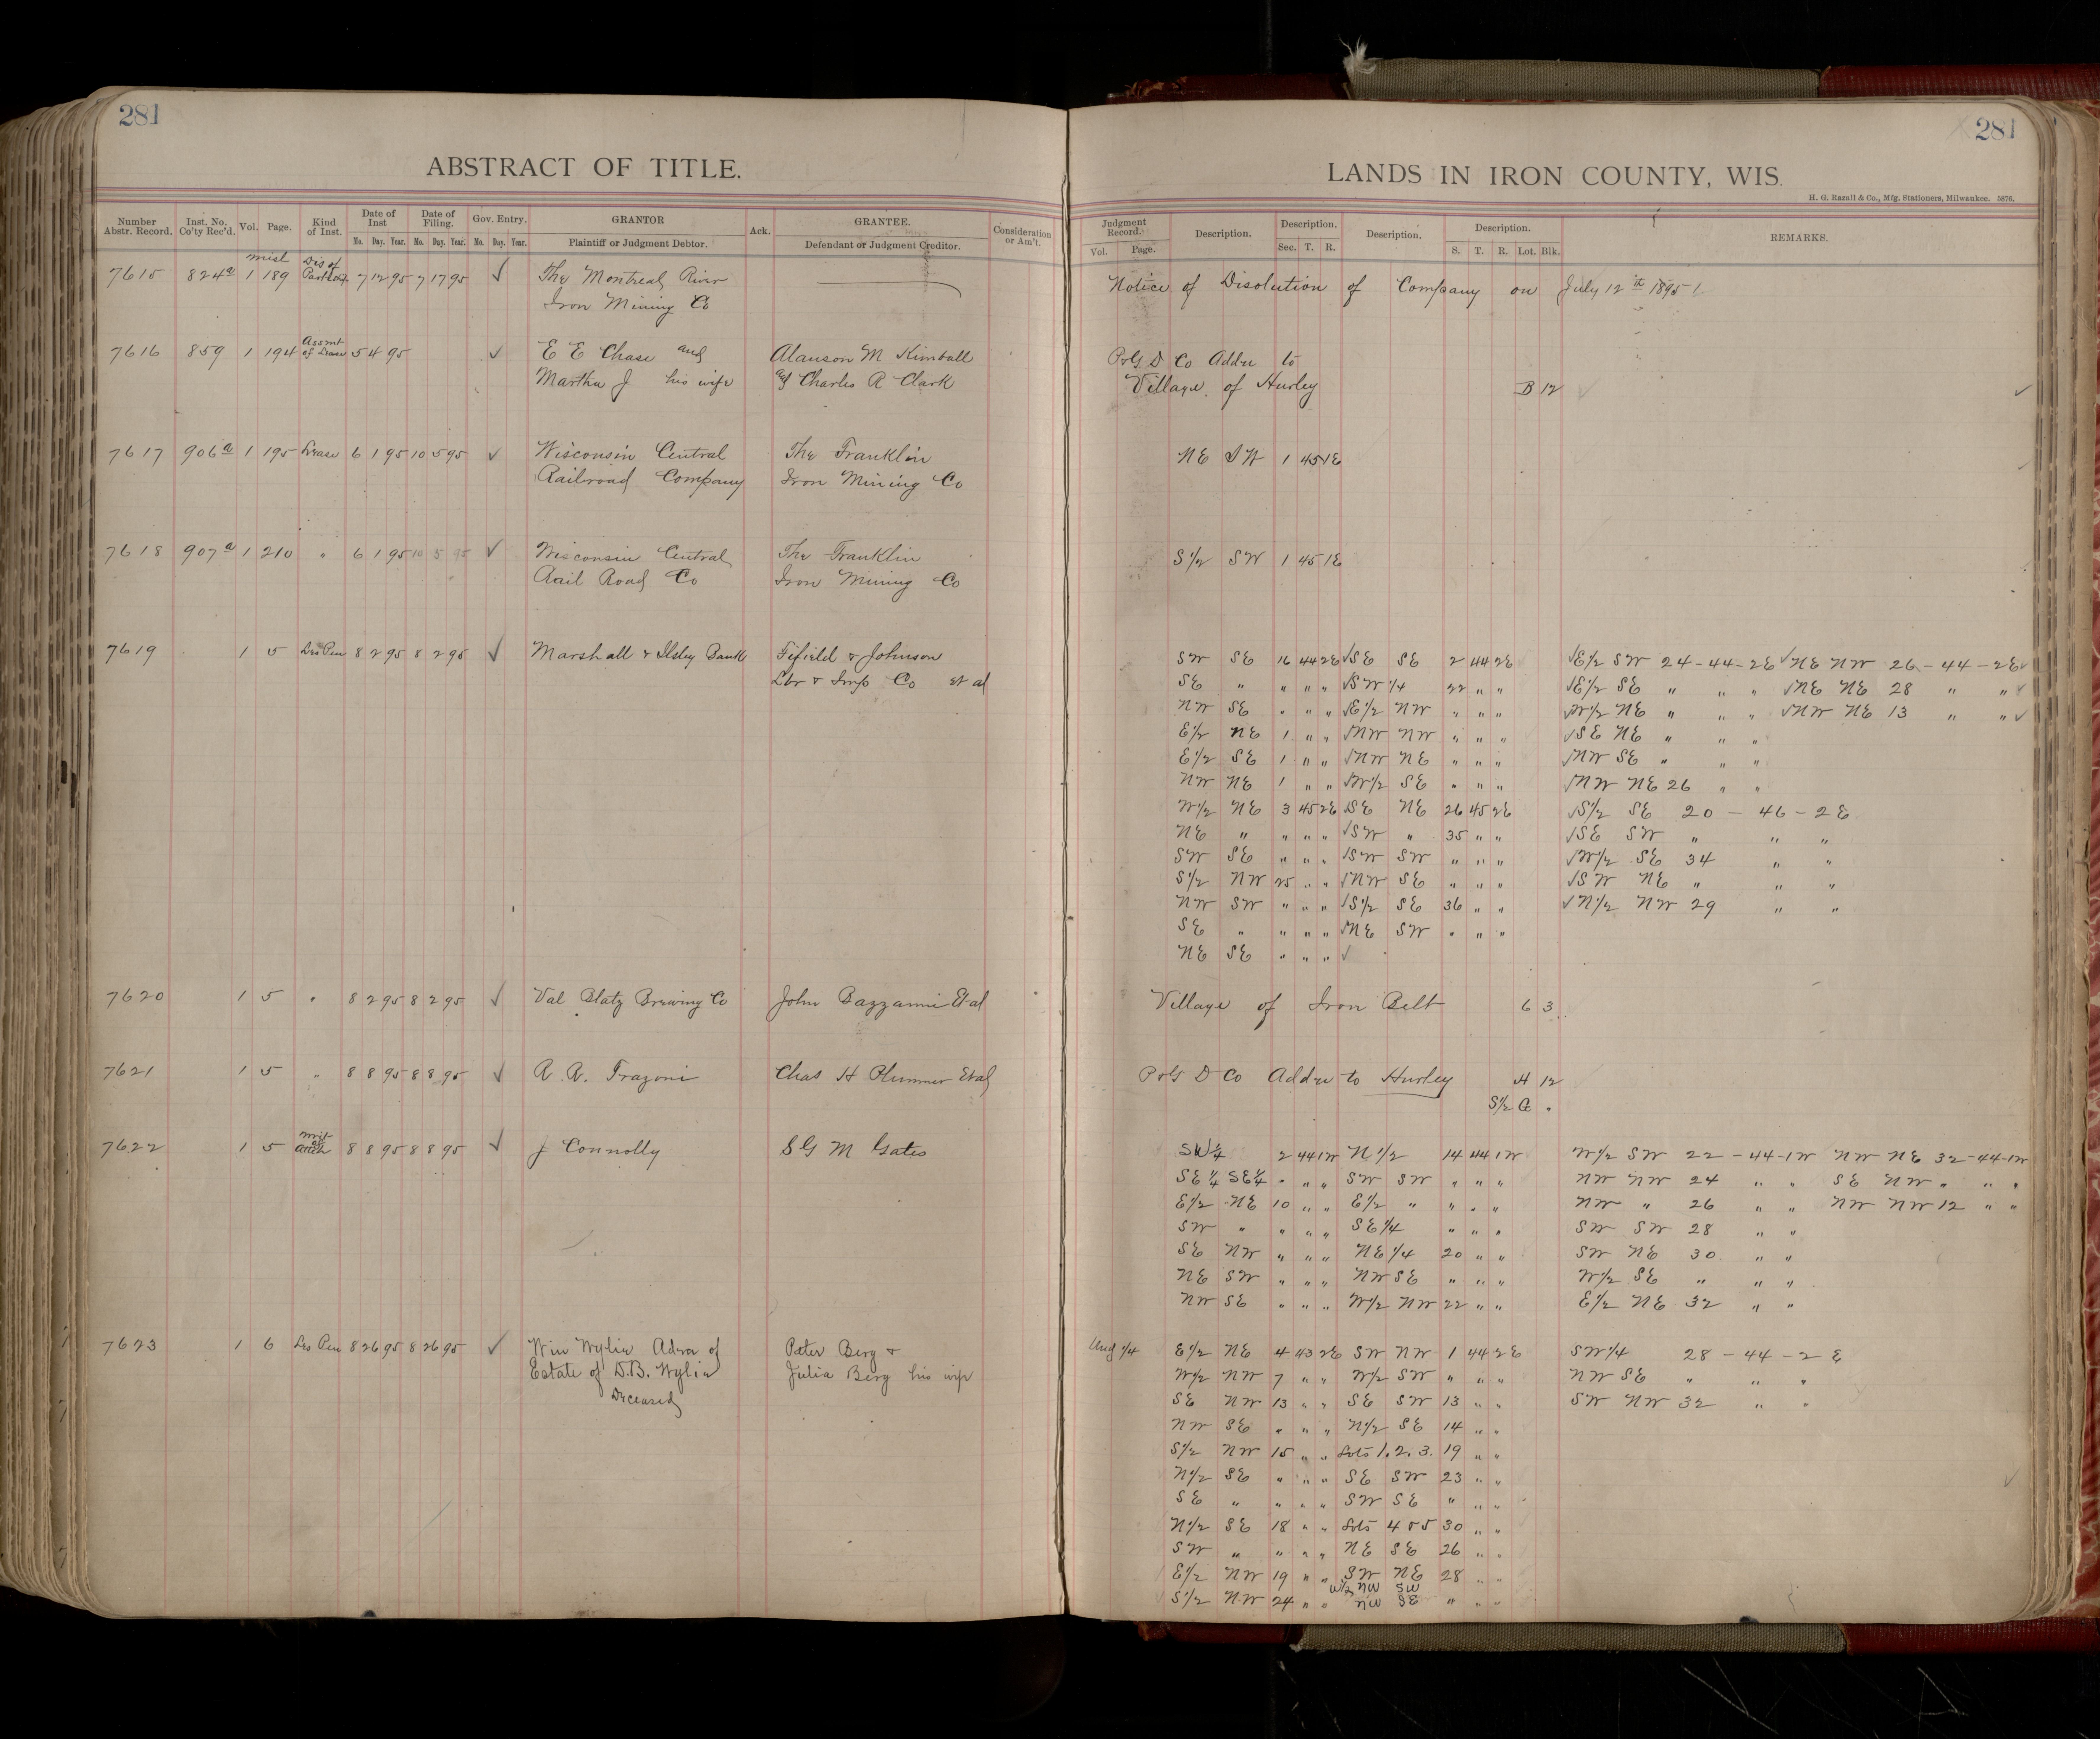 281
ABSTRACT OF TITLE.
Number Abstr. Record. Inst. No. Co'ty Rec'd. Vol. Page. Kind of Inst. Date of Inst Mo. Day. Year. Date of Filing. Mo. Day. Year. Gov. Entry. Mo. Day. Year. GRANTOR Plaintiff or Judgment Debtor. Ack. GRANTEE. Defendant or Judgment Creditor. Consideration or Am't.
7615 824a misl 1 189 Dis of 7 12 95 7 17 95 ✓ The Montreal River
Iron Mining Co
7616 859 1 194 Assmt of Lease 5 4 95 ✓ E E Chase and Alanson M Kimball
Martha J his wife and Charles R Clark
7617 906a 1 195 Lease 6 1 95 10 5 95 ✓ Wisconsin Central The Franklin
Railroad Company Iron Mining Co
7618 907a 1 210 " 6 1 95 10 5 95 ✓ Wisconsin Central The Franklin
Rail Road Co Iron Mining Co
7619 1 5 Les Pen 8 2 95 8 2 95 ✓ Marshall & Ilsley Bank Fifield & Johnson
Lbr & Imp Co et al
7620 1 5 " 8 2 95 8 2 95 ✓ Val Blatz Brewing Co John Bazzanni Et al
7621 1 5 " 8 8 95 8 8 95 ✓ A. A. Frazoni Chas H Plummer Et al
7622 1 5 Writ of Attch 8 8 95 8 8 95 ✓ J Connolly S G M Gates
7623 1 6 Les Pen 8 26 95 8 26 95 ✓ Wm Wylie Admr of Peter Berg &
Estate of D.B. Wylie Julia Berg his wife
Deceased
281
LANDS IN IRON COUNTY, WIS.
H. G. Razall & Co., Mfg. Stationers, Milwaukee. 5876.
Judgment Record. Vol. Page. Description. Description. Sec. T. R. Description. Description. S. T. R. Lot. Blk. REMARKS.
Notice of Disolution of Company on July 12th 1895
P & G D Co Addn to
Village of Hurley B 12 ✓
NE SW 1 45 1E
S 1/2 SW 1 45 1E
SW SE 16 44 2E ✓SE SE 2 44 2E ✓E1/2 SW 24-44-2E ✓NE NW 26-44-2E✓
SE " " " " ✓SW 1/4 22 " " ✓E1/2 SE " " " ✓NE NE 28 " "✓
NW SE " " " ✓E1/2 NW " " " ✓W1/2 NE " " " ✓NW NE 13 " "✓
E1/2 NE 1 " " ✓NW NW " " " ✓SE NE " " "
E1/2 SE 1 " " ✓NW NE " " " ✓NW SE " " "
NW NE 1 " " ✓W1/2 SE " " " ✓NW NE 26 " "
W1/2 NE 3 45 2E ✓SE NE 26 45 2E ✓S1/2 SE 20 - 46 - 2E
NE " " " " ✓SW " 35 " " ✓SE SW " " "
SW SE " " " ✓SW SW " " " ✓W1/2 SE 34 " "
S1/2 NW 25 " " ✓NW SE " " " ✓SW NE " " "
NW SW " " " ✓S1/2 SE 36 " " ✓N1/2 NW 29 " "
SE " " " " ✓NE SW " " "
NE SE " " " ✓
Village of Iron Belt 6 3
P & G D Co Addn to Hurley H 12
S1/2 G "
SW 1/4 2 44 1W N 1/2 14 44 1W W1/2 SW 22 - 44-1W NW NE 32-44-1W
SE 1/4 SE 1/4 " " " SW SW " " " NW NW 24 " " SE NW " " "
E1/2 NE 10 " " E1/2 " " " " NW " 26 " " NW NW 12 " "
SW " " " " SE 1/4 " " " SW SW 28 " "
SE NW " " " NE 1/4 20 " " SW NE 30 " "
NE SW " " " NW SE " " " W1/2 SE " " "
NW SE " " " W1/2 NW 22 " " E1/2 NE 32 " "
E1/2 NE 4 43 2E SW NW 1 44 2E SW 1/4 28 - 44 - 2 E
W1/2 NW 7 " " W1/2 SW " " " NW SE " " "
SE NW 13 " " SE SW 13 " " SW NW 32 " "
NW SE " " " N1/2 SE 14 " "
S1/2 NW 15 " " Lots 1. 2. 3. 19 " "
N1/2 SE " " " SE SW 23 " "
SE " " " " SW SE " " "
N1/2 SE 18 " " Lots 4 & 5 30 " "
SW " " " " NE SE 26 " "
E1/2 NW 19 " " SW NE 28 " "
W1/2 NW SW
S1/2 NW 24 " " NW SE " " "